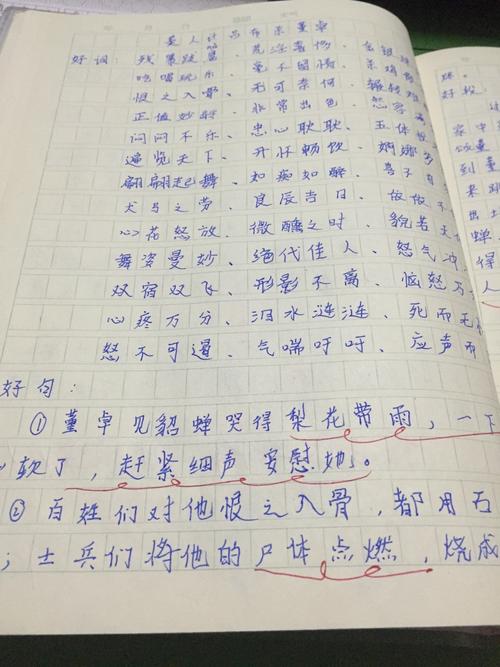 美人计 吕布杀董卓
好词：残暴跋扈、荒淫奢侈、金银珠
吃喝玩乐、毫不留情、杀鸡
恨之入骨、无可奈何、辗转难
正值妙龄、非常出色、怨家
闷闷不乐、忠心耿耿、五体投
遍览天下、开怀畅饮、婀娜多
翩翩起舞、如痴如醉、喜不自
犬马之劳、良辰吉日、做
心花怒放、微醺之时、貌若天
舞姿曼妙、绝代佳人、怒气冲
双宿双飞、形影不离、恼怒万
心疼万分、泪水涟涟、死而无
怒不可遏、气喘吁吁、应声而
好句：
①董卓见貂蝉哭得梨花带雨，一下
软了，赶紧细声安慰她。
②百姓们对他恨之入骨，都用石
；士兵们将他的尸体点燃，烧成
好投
家中
到董
来
出
蝉
得
人